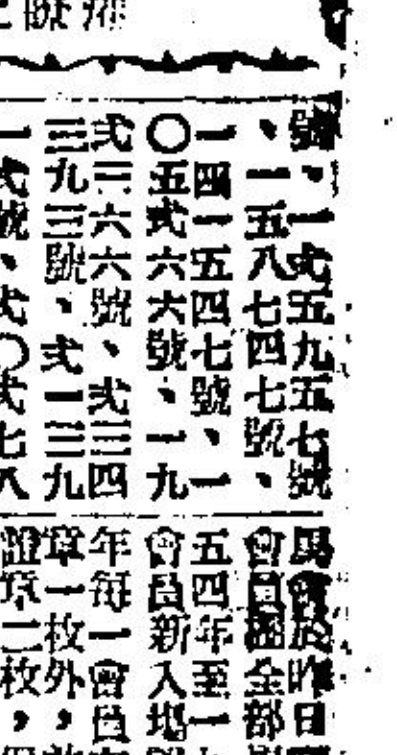 號、一弍五九五七號
、一五八七四七號、
一四一五四七號、一
〇五弍六六號、一九
弍三六六號、弍三四
三九三號、弍一三九
一弍號、弍〇弍七八
馬會於昨日
會員全部
五四年至一
會員新入塲
年每一會員
章一枚外，
證章二枚，